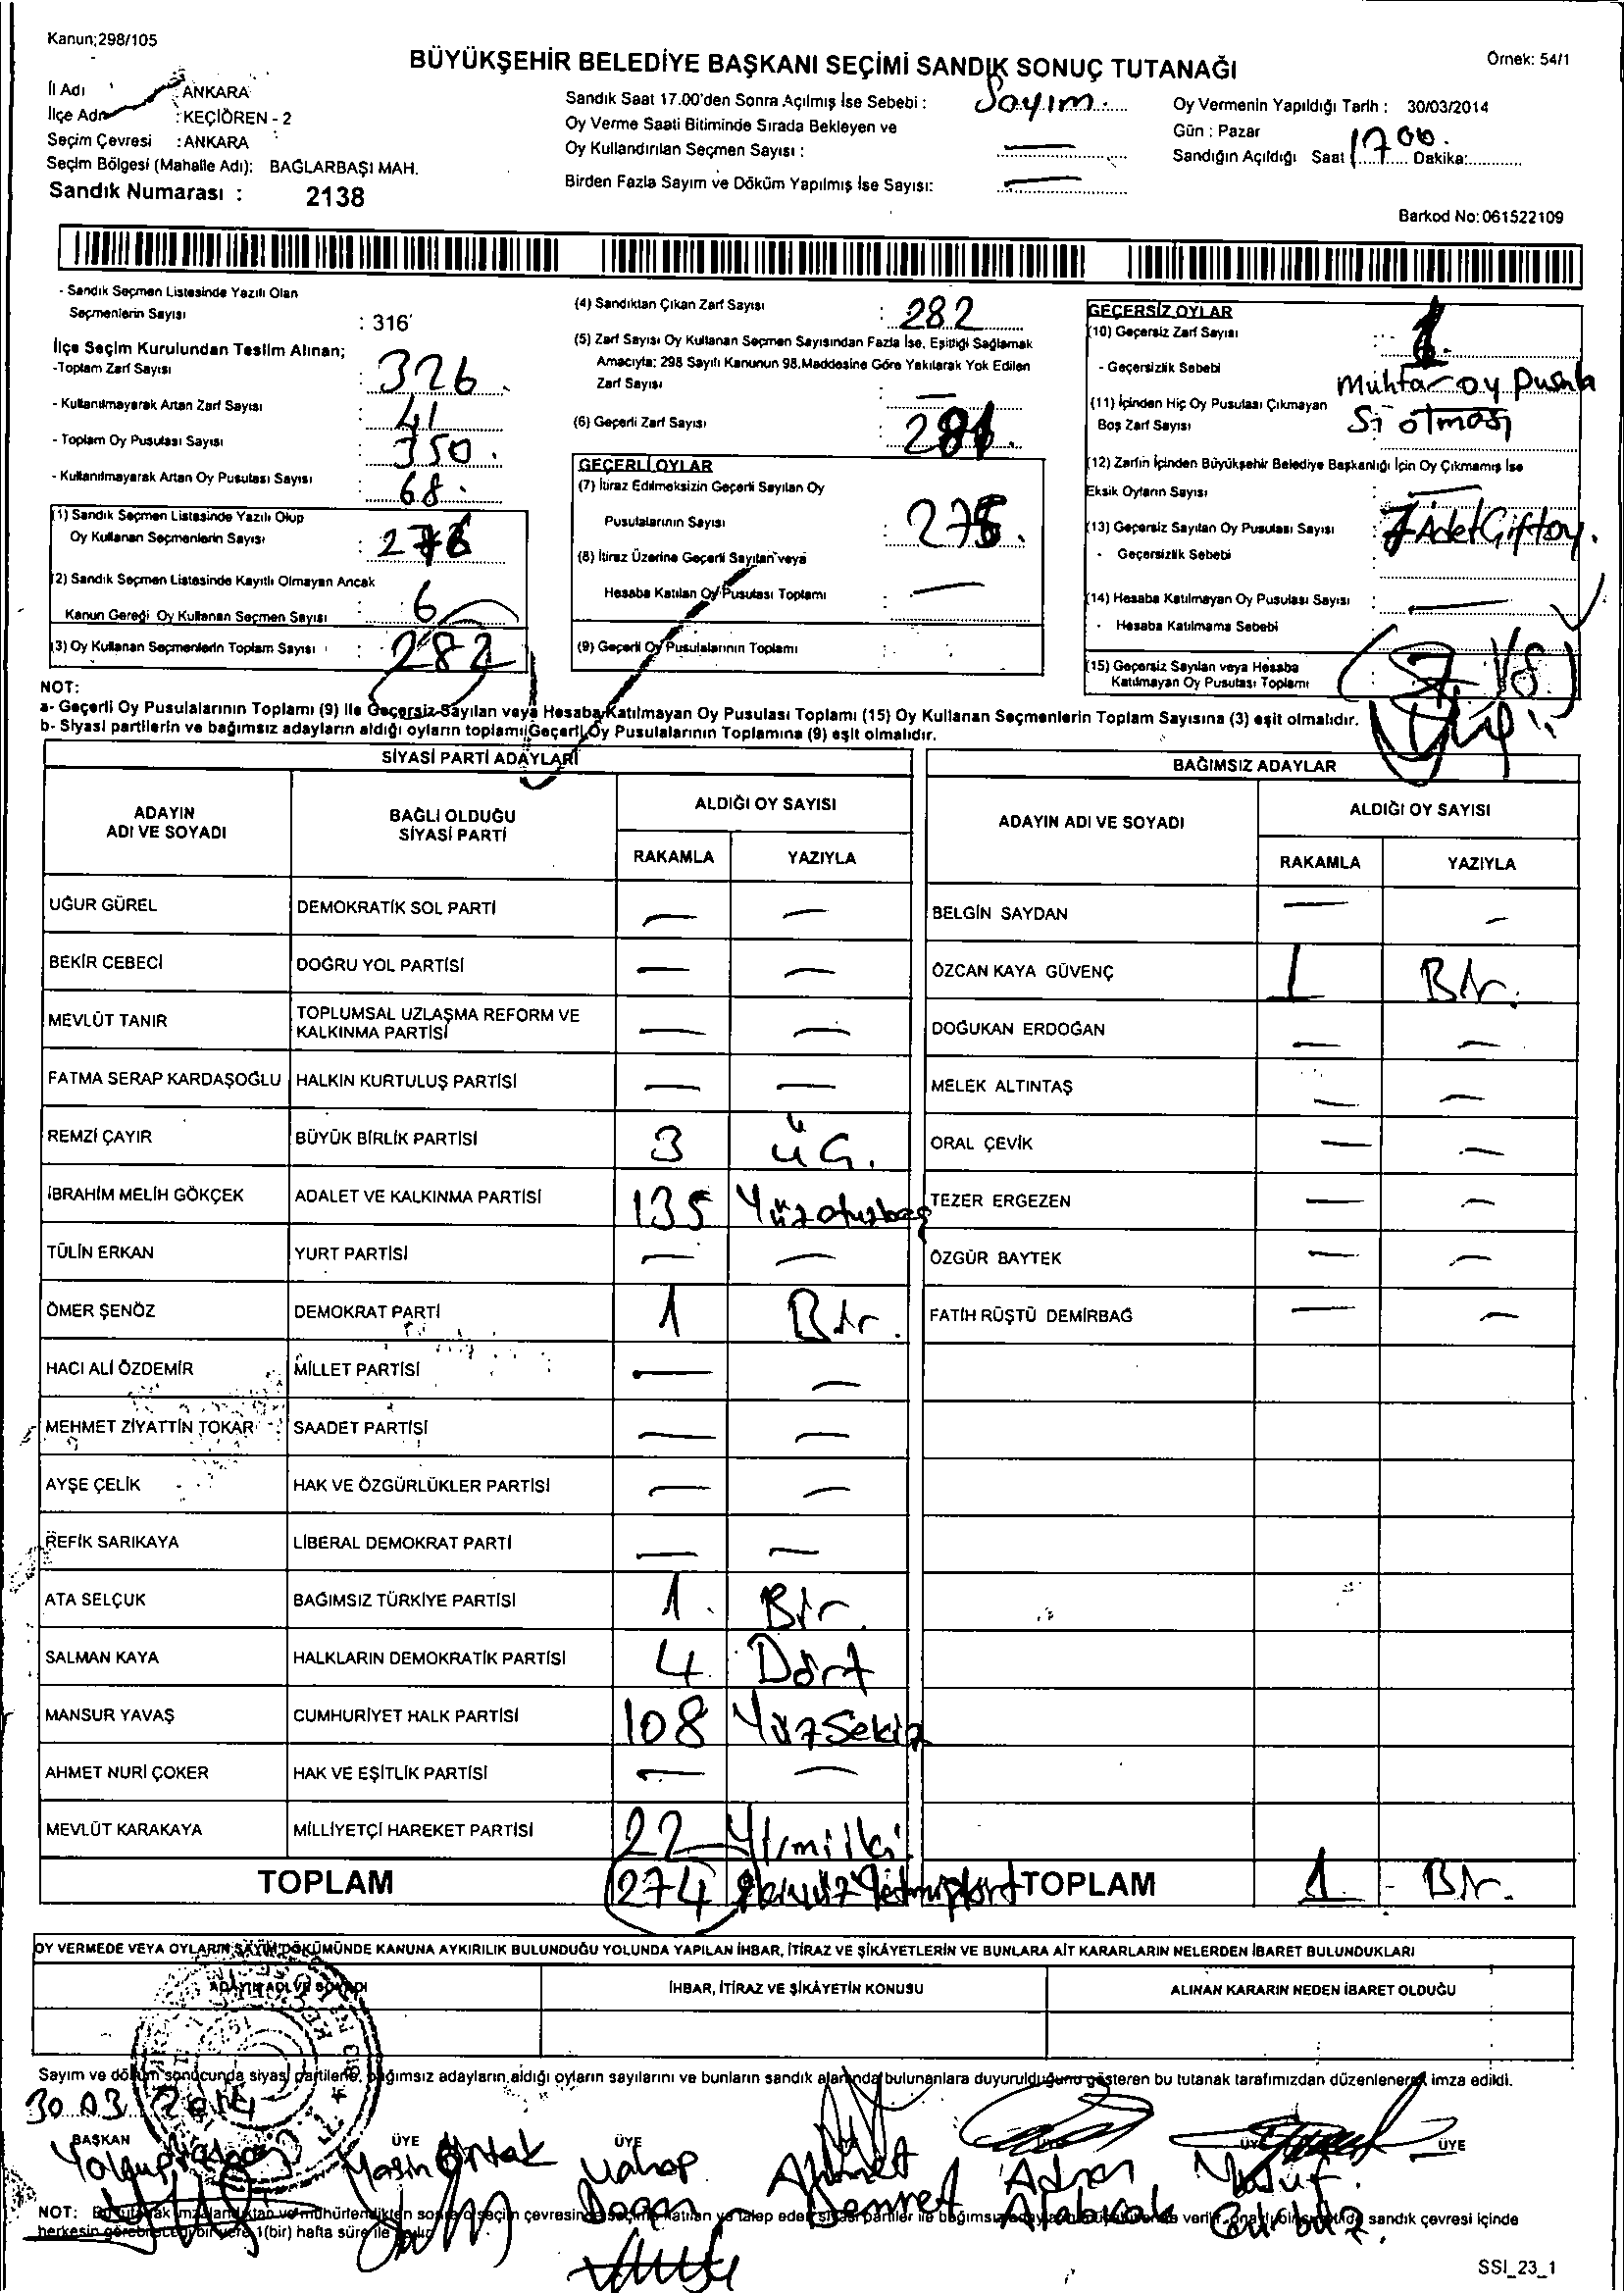 Kanun;298/105
BÜYÜKŞEHİR BELEDİYE BAŞKANI SEÇİMİ SANDIK SONUÇ TUTANAĞI
Örnek: 54/1
İl Adı : ANKARA
İlçe Adı : KEÇİÖREN - 2
Seçim Çevresi : ANKARA
Seçim Bölgesi (Mahalle Adı): BAĞLARBAŞI MAH.
Sandık Numarası : 2138
Sandık Saat 17.00'den Sonra Açılmış İse Sebebi : Sayım
Oy Verme Saati Bitiminde Sırada Bekleyen ve
Oy Kullandırılan Seçmen Sayısı : —
Birden Fazla Sayım ve Döküm Yapılmış İse Sayısı: —
Oy Vermenin Yapıldığı Tarih : 30/03/2014
Gün : Pazar
Sandığın Açıldığı Saat 17 00 Dakika:
Barkod No: 061522109
- Sandık Seçmen Listesinde Yazılı Olan
Seçmenlerin Sayısı : 316
İlçe Seçim Kurulundan Teslim Alınan;
-Toplam Zarf Sayısı : 326
- Kullanılmayarak Artan Zarf Sayısı : 41
- Toplam Oy Pusulası Sayısı : 350
- Kullanılmayarak Artan Oy Pusulası Sayısı : 68
(1) Sandık Seçmen Listesinde Yazılı Olup
Oy Kullanan Seçmenlerin Sayısı : 276
(2) Sandık Seçmen Listesinde Kayıtlı Olmayan Ancak
Kanun Gereği Oy Kullanan Seçmen Sayısı : 6
(3) Oy Kullanan Seçmenlerin Toplam Sayısı : 282
(4) Sandıktan Çıkan Zarf Sayısı : 282
(5) Zarf Sayısı Oy Kullanan Seçmen Sayısından Fazla İse, Eşitliği Sağlamak
Amacıyla; 298 Sayılı Kanunun 98.Maddesine Göre Yakılarak Yok Edilen
Zarf Sayısı : —
(6) Geçerli Zarf Sayısı : 281
GEÇERLİ OYLAR
(7) İtiraz Edilmeksizin Geçerli Sayılan Oy
Pusulalarının Sayısı : 275
(8) İtiraz Üzerine Geçerli Sayılan veya
Hesaba Katılan Oy Pusulası Toplamı : —
(9) Geçerli Oy Pusulalarının Toplamı :
GEÇERSİZ OYLAR
(10) Geçersiz Zarf Sayısı : 1
- Geçersizlik Sebebi : Muhtar oy Pusula
(11) İçinden Hiç Oy Pusulası Çıkmayan
Boş Zarf Sayısı Si olması
(12) Zarfın İçinden Büyükşehir Belediye Başkanlığı İçin Oy Çıkmamış İse
Eksik Oyların Sayısı : —
(13) Geçersiz Sayılan Oy Pusulası Sayısı : 7 Adet Çift oy.
- Geçersizlik Sebebi
(14) Hesaba Katılmayan Oy Pusulası Sayısı : —
- Hesaba Katılmama Sebebi
(15) Geçersiz Sayılan veya Hesaba
Katılmayan Oy Pusulası Toplamı
NOT:
a- Geçerli Oy Pusulalarının Toplamı (9) ile Geçersiz Sayılan veya Hesaba Katılmayan Oy Pusulası Toplamı (15) Oy Kullanan Seçmenlerin Toplam Sayısına (3) eşit olmalıdır.
b- Siyasi partilerin ve bağımsız adayların aldığı oyların toplamı Geçerli Oy Pusulalarının Toplamına (9) eşit olmalıdır.
SİYASİ PARTİ ADAYLARI
ADAYIN ADI VE SOYADI
BAĞLI OLDUĞU SİYASİ PARTİ
ALDIĞI OY SAYISI
RAKAMLA YAZIYLA
UĞUR GÜREL DEMOKRATİK SOL PARTİ — —
BEKİR CEBECİ DOĞRU YOL PARTİSİ — —
MEVLÜT TANIR TOPLUMSAL UZLAŞMA REFORM VE KALKINMA PARTİSİ — —
FATMA SERAP KARDAŞOĞLU HALKIN KURTULUŞ PARTİSİ — —
REMZİ ÇAYIR BÜYÜK BİRLİK PARTİSİ 3 üç.
İBRAHİM MELİH GÖKÇEK ADALET VE KALKINMA PARTİSİ 135 Yüzotuzbeş
TÜLİN ERKAN YURT PARTİSİ — —
ÖMER ŞENÖZ DEMOKRAT PARTİ 1 Bir.
HACI ALİ ÖZDEMİR MİLLET PARTİSİ — —
MEHMET ZİYATTİN TOKAR SAADET PARTİSİ — —
AYŞE ÇELİK HAK VE ÖZGÜRLÜKLER PARTİSİ — —
REFİK SARIKAYA LİBERAL DEMOKRAT PARTİ — —
ATA SELÇUK BAĞIMSIZ TÜRKİYE PARTİSİ 1 Bir
SALMAN KAYA HALKLARIN DEMOKRATİK PARTİSİ 4 Dört
MANSUR YAVAŞ CUMHURİYET HALK PARTİSİ 108 YüzSekiz
AHMET NURİ ÇOKER HAK VE EŞİTLİK PARTİSİ — —
MEVLÜT KARAKAYA MİLLİYETÇİ HAREKET PARTİSİ 22 Yirmiİki
TOPLAM 274 ikiyüz Yetmişdört
BAĞIMSIZ ADAYLAR
ADAYIN ADI VE SOYADI
ALDIĞI OY SAYISI
RAKAMLA YAZIYLA
BELGİN SAYDAN — —
ÖZCAN KAYA GÜVENÇ 1 Bir.
DOĞUKAN ERDOĞAN — —
MELEK ALTINTAŞ — —
ORAL ÇEVİK — —
TEZER ERGEZEN — —
ÖZGÜR BAYTEK — —
FATİH RÜŞTÜ DEMİRBAĞ — —
TOPLAM 1 Bir.
OY VERMEDE VEYA OYLARIN SAYIM DÖKÜMÜNDE KANUNA AYKIRILIK BULUNDUĞU YOLUNDA YAPILAN İHBAR, İTİRAZ VE ŞİKÂYETLERİN VE BUNLARA AİT KARARLARIN NELERDEN İBARET BULUNDUKLARI
ADAYIN ADI VE SOYADI
İHBAR, İTİRAZ VE ŞİKÂYETİN KONUSU
ALINAN KARARIN NEDEN İBARET OLDUĞU
Sayım ve döküm sonucunda siyasi partilerle, bağımsız adayların aldığı oyların sayılarını ve bunların sandık alanında bulunanlara duyurulduğunu gösteren bu tutanak tarafımızdan düzenlenerek imza edildi.
30 03 2014
BAŞKAN ÜYE ÜYE ÜYE ÜYE
Yasin Ortak Vahap Doğan Ahmet Demret Adnan Yusuf Gürbüz
NOT: Bu tutanak imzalandıktan ve mühürlendikten sonra o seçim çevresinde seçime katılan ve talep eden siyasi partiler ile bağımsız
herkesin görebileceği bir yere 1(bir) hafta süre ile
sandık çevresi içinde
SSI_23_1